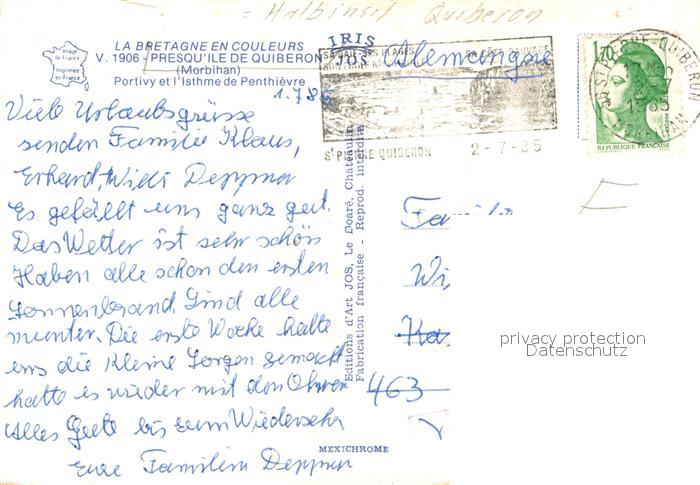 = Halbinsel Quiberon
Image de France
Imprimée en France
LA BRETAGNE EN COULEURS
V. 1906 - PRESQU'ILE DE QUIBERON
(Morbihan)
Portivy et l'Isthme de Penthièvre
1.7.85
IRIS
JOS
Allemangne
SA BAIE-SES PLAGES
SA COTE SAUVAGE
SON ECOLE
ST PIERRE QUIBERON
2-7-85
ST PIERRE QUIBERON
1,70
REPUBLIQUE FRANCAISE
F
Viele Urlaubsgrüsse
senden Familie Klaus,
Erhard, Willi Deppner
Es gefällt uns ganz gut.
Das Wetter ist sehr schön
Haben alle schon den ersten
Sonnenbrand. Sind alle
munter. Die erste Woche hatte
uns die Kleine Sorgen gemacht
hatte es wieder mit den Ohren
Alles Gute bis zum Wiedersehn
Eure Familie Deppner
Editions d'Art JOS, Le Doaré, Chateaulin
Fabrication française - Reprod. interdite
MEXICHROME
Fa
Wi
Ka
463
privacy protection
Datenschutz